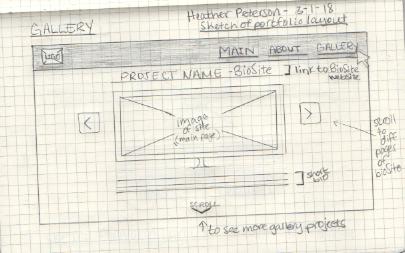 Heather Peterson - 3-1-18
Sketch of portfolio layout
GALLERY
LOGO
MAIN ABOUT GALLERY
PROJECT NAME - BioSite
link to BioSite website
image of site (main page)
<
>
scroll to diff pages of bioSite
short bio
SCROLL
to see more gallery projects